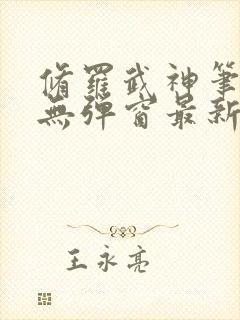 脩羅武神筆
無彈窗最新
王永亮